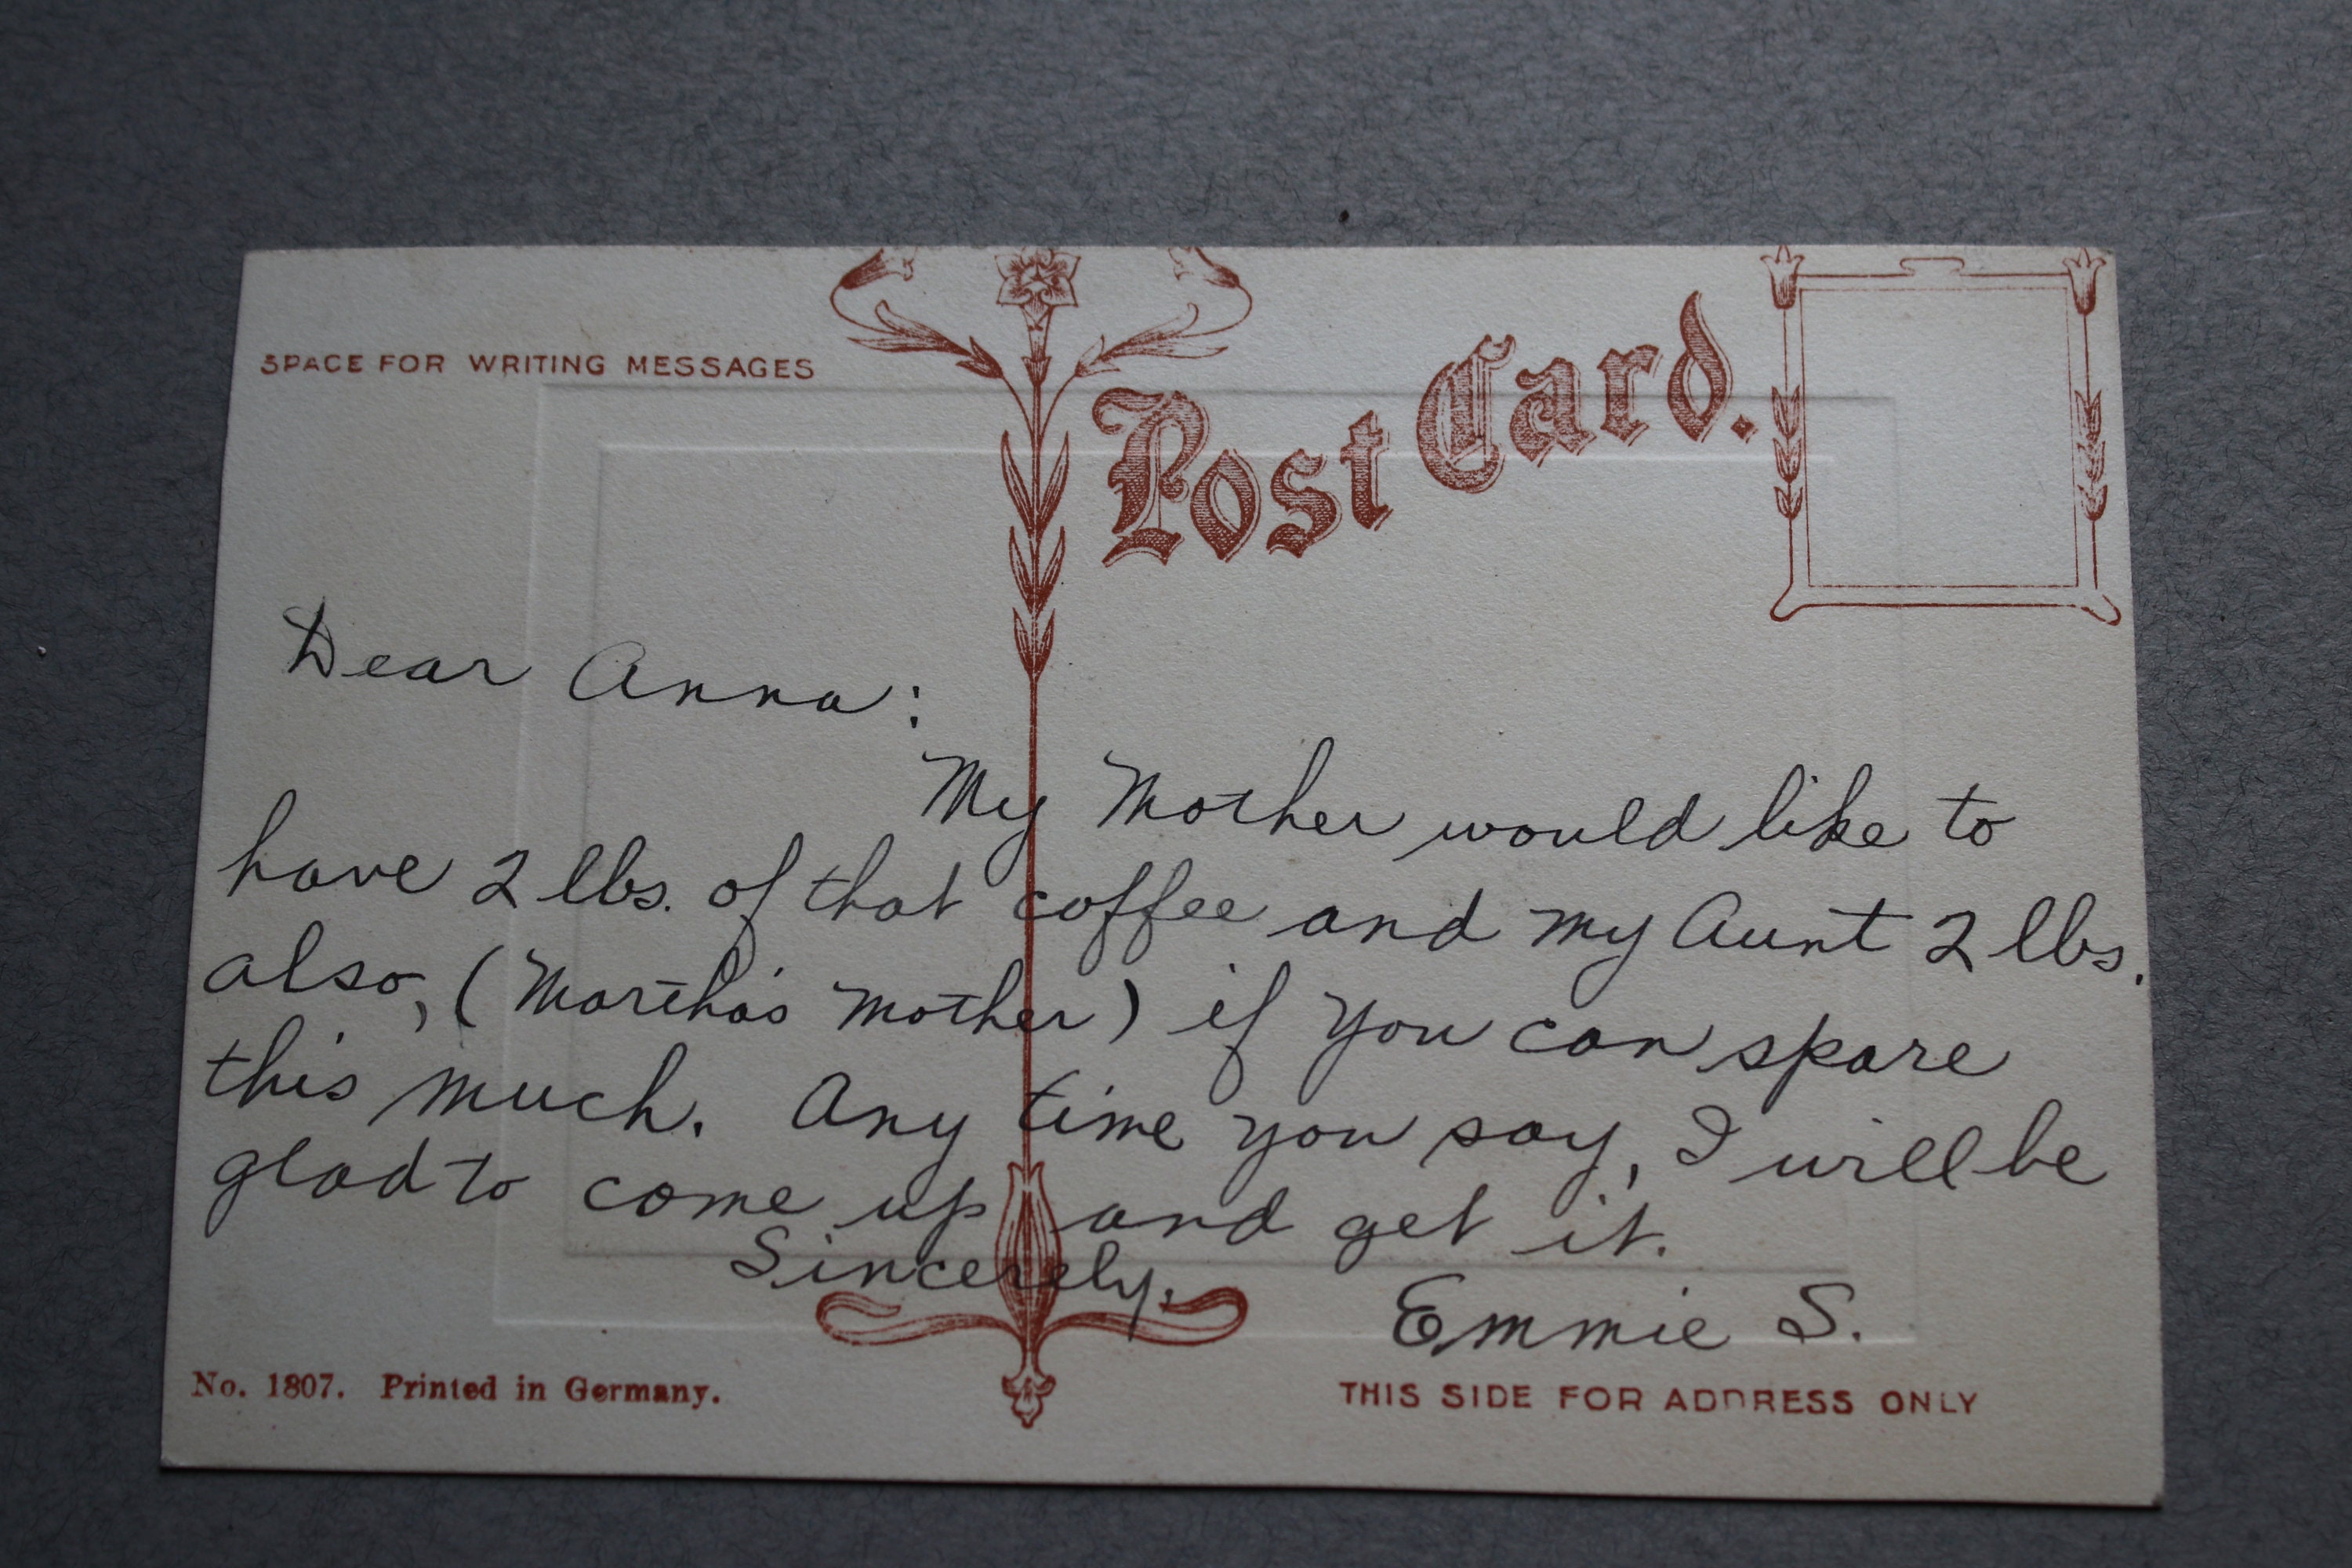 SPACE FOR WRITING MESSAGES
Post Card.
Dear Anna:
My Mother would like to
have 2 lbs. of that coffee and my Aunt 2 lbs.
also, (Martha's Mother) if you can spare
this much. Any time you say, I will be
glad to come up and get it.
Sincerely,
Emmie S.
No. 1807. Printed in Germany.
THIS SIDE FOR ADDRESS ONLY